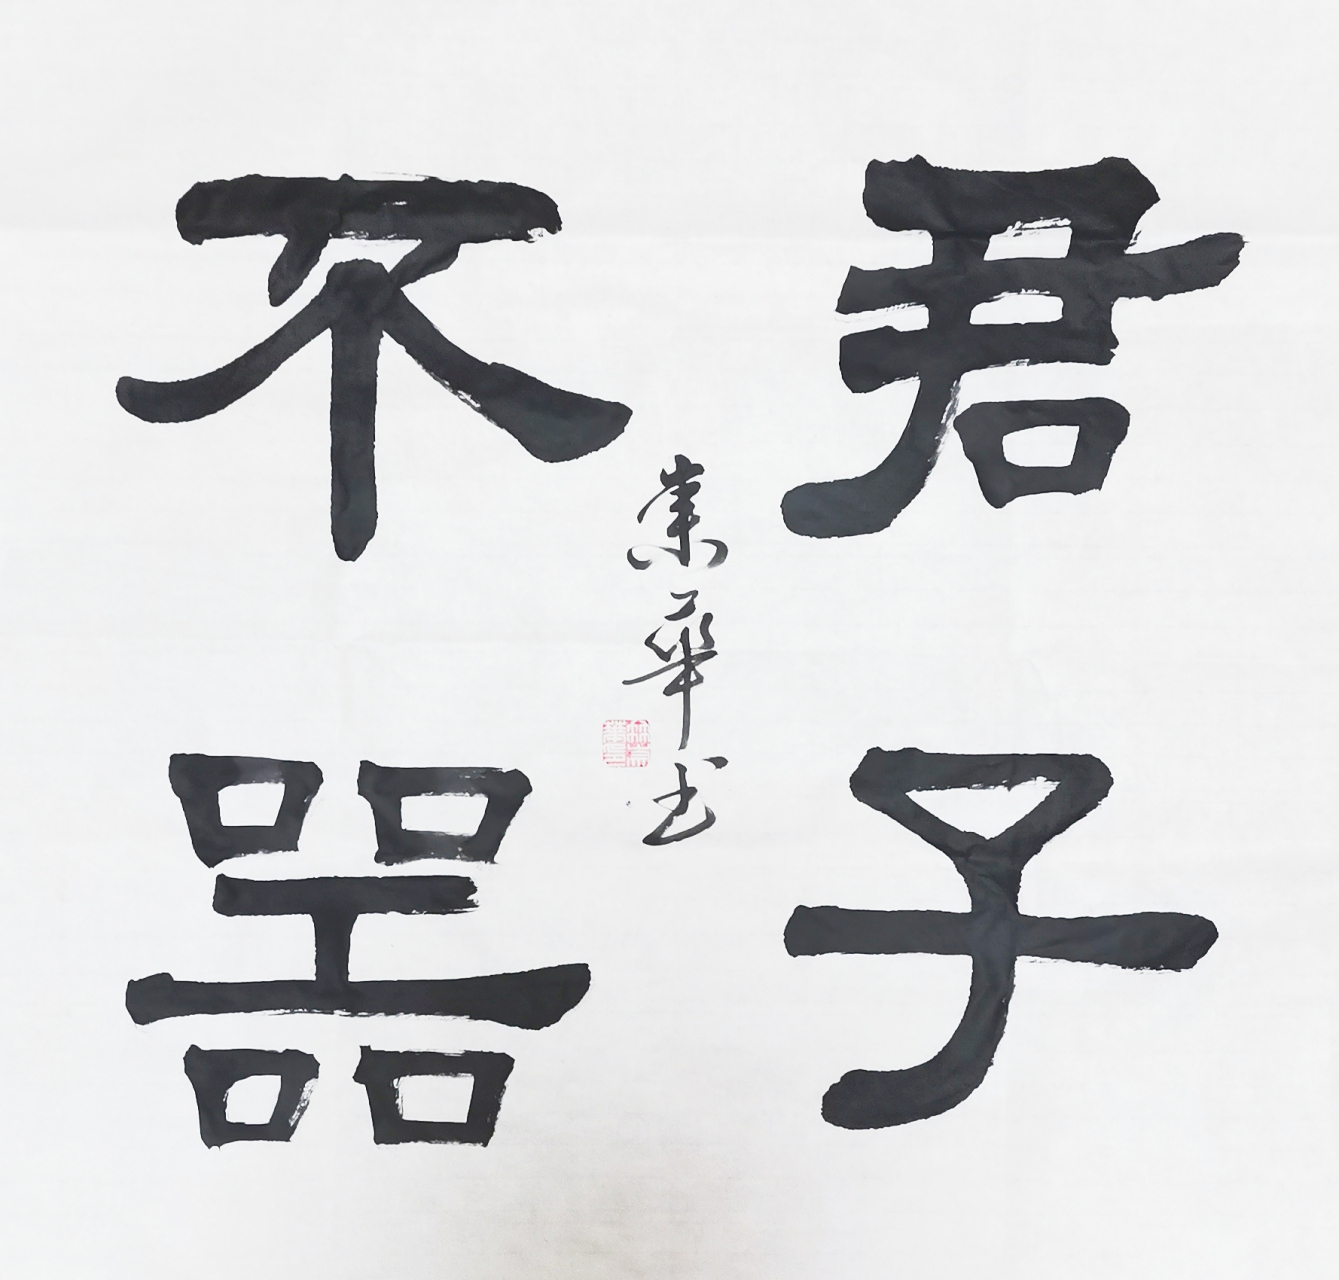 君子
不器
業華书